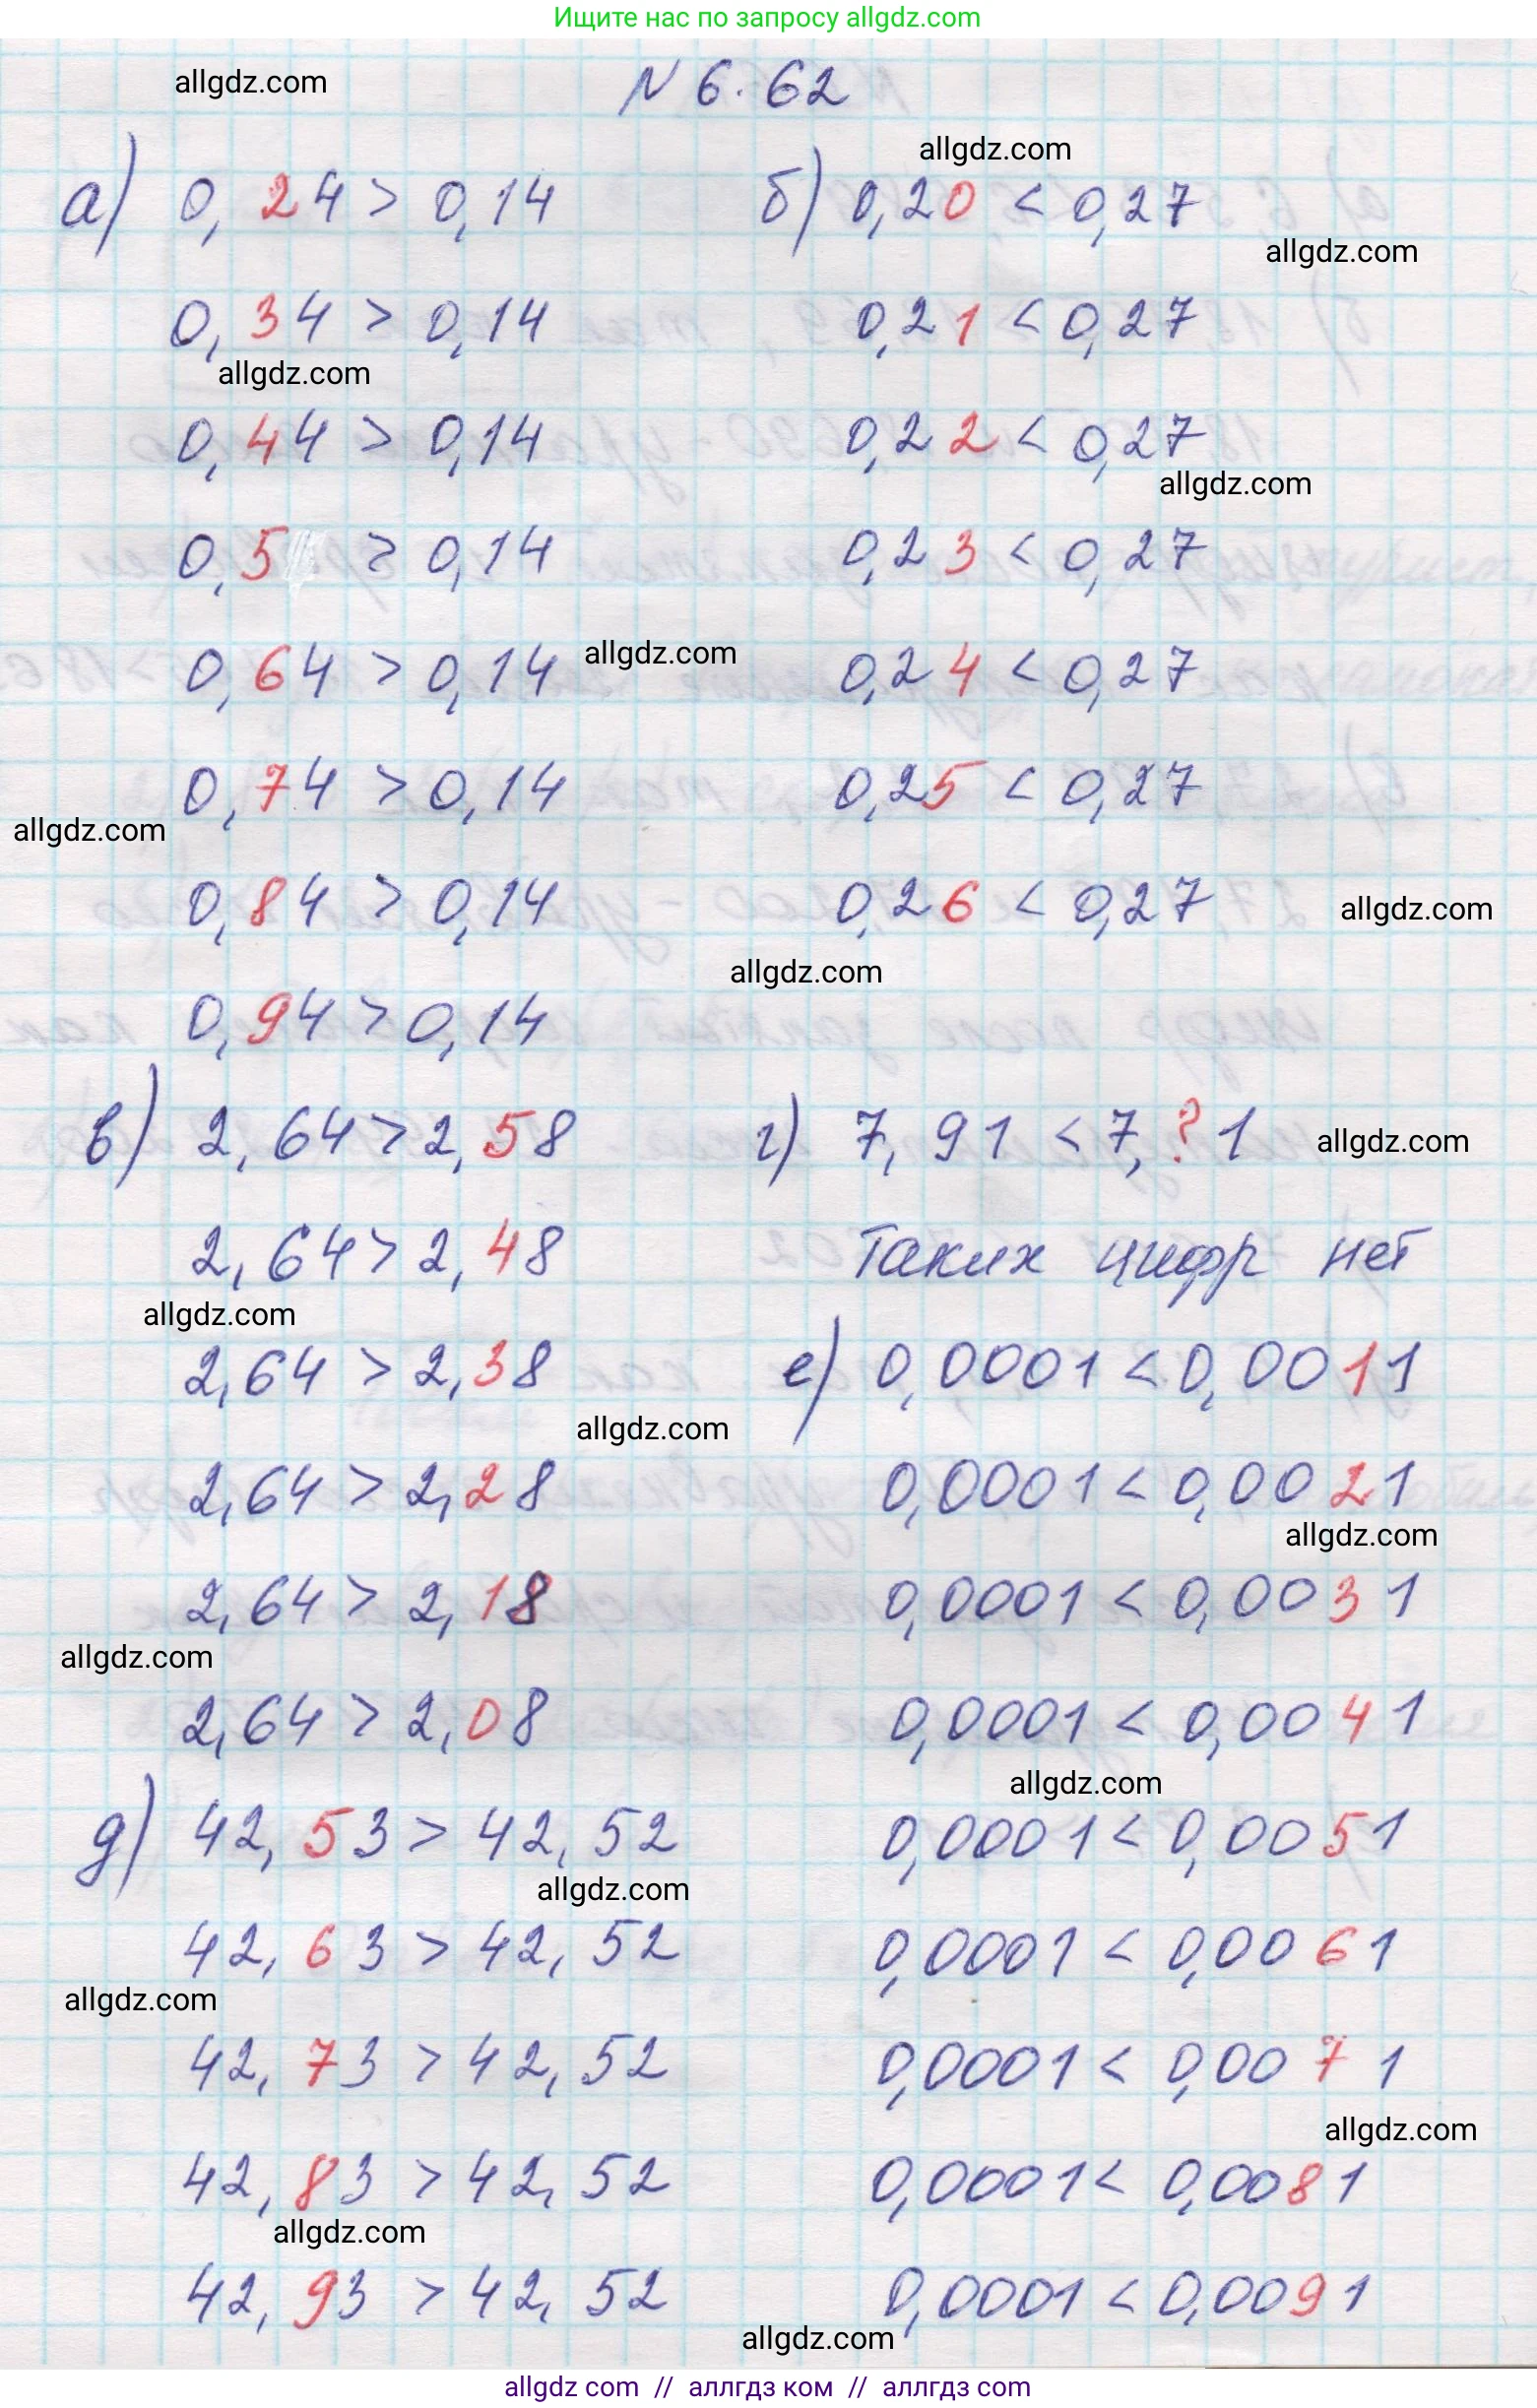 Ищите нас по запросу allgdz.com
allgdz.com
N 6.62
allgdz.com
а) 0,24 > 0,14
б) 0,20 < 0,27
allgdz.com
0,34 > 0,14
0,21 < 0,27
allgdz.com
0,44 > 0,14
0,22 < 0,27
allgdz.com
0,5 > 0,14
0,23 < 0,27
0,64 > 0,14
allgdz.com
0,24 < 0,27
0,74 > 0,14
0,25 < 0,27
allgdz.com
0,84 > 0,14
0,26 < 0,27
allgdz.com
allgdz.com
0,94 > 0,14
в) 2,64 > 2,58
г) 7,91 < 7,?1
allgdz.com
2,64 > 2,48
Таких цифр нет
allgdz.com
2,64 > 2,38
е) 0,0001 < 0,0011
allgdz.com
2,64 > 2,28
0,0001 < 0,0021
allgdz.com
2,64 > 2,18
0,0001 < 0,0031
allgdz.com
2,64 > 2,08
0,0001 < 0,0041
allgdz.com
д) 42,53 > 42,52
0,0001 < 0,0051
allgdz.com
42,63 > 42,52
0,0001 < 0,0061
allgdz.com
42,73 > 42,52
0,0001 < 0,0071
allgdz.com
42,83 > 42,52
0,0001 < 0,0081
allgdz.com
42,93 > 42,52
0,0001 < 0,0091
allgdz.com
allgdz com // аллгдз ком // аллгдз com